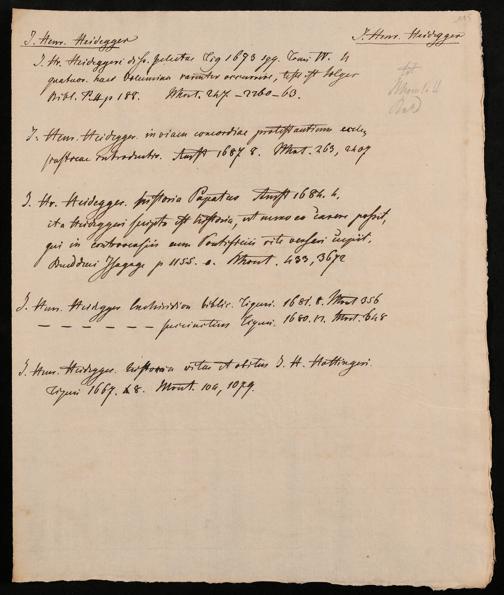 J. Henr. Heidegger
J. Henr. Heidegger
J. Hr. Heideggeri diss. selectae Tig 1673 sqq. Tomi IV. 4
quatuor haec volumina rariter occurrere, test. est Solger
Bibl. P. 4. p 188. Mscrt. 247 - 2260 - 63.
J. Henr. Heidegger. in viam concordiae protestantium eccles.
introductio. Amst 1687 8. 263, 2209
J. Hr. Heidegger. Historia Papatus Amst 1684. 4.
ita Heideggeri scripta est historia, ut nemo ea carere possit,
qui in controversiis cum Pontificiis rite versari cupit.
Buddeus Isagoge p 1155. a. 433, 3672
J. Henr. Heidegger Enchiridion biblic. Tiguri. 1681. 8. 356
— — — — — — — Tiguri. 1680. 12. 648
J. Henr. Heidegger. historia vitae et obitus J. H. Hottingeri.
Tiguri 1667. 8. 104, 1079.